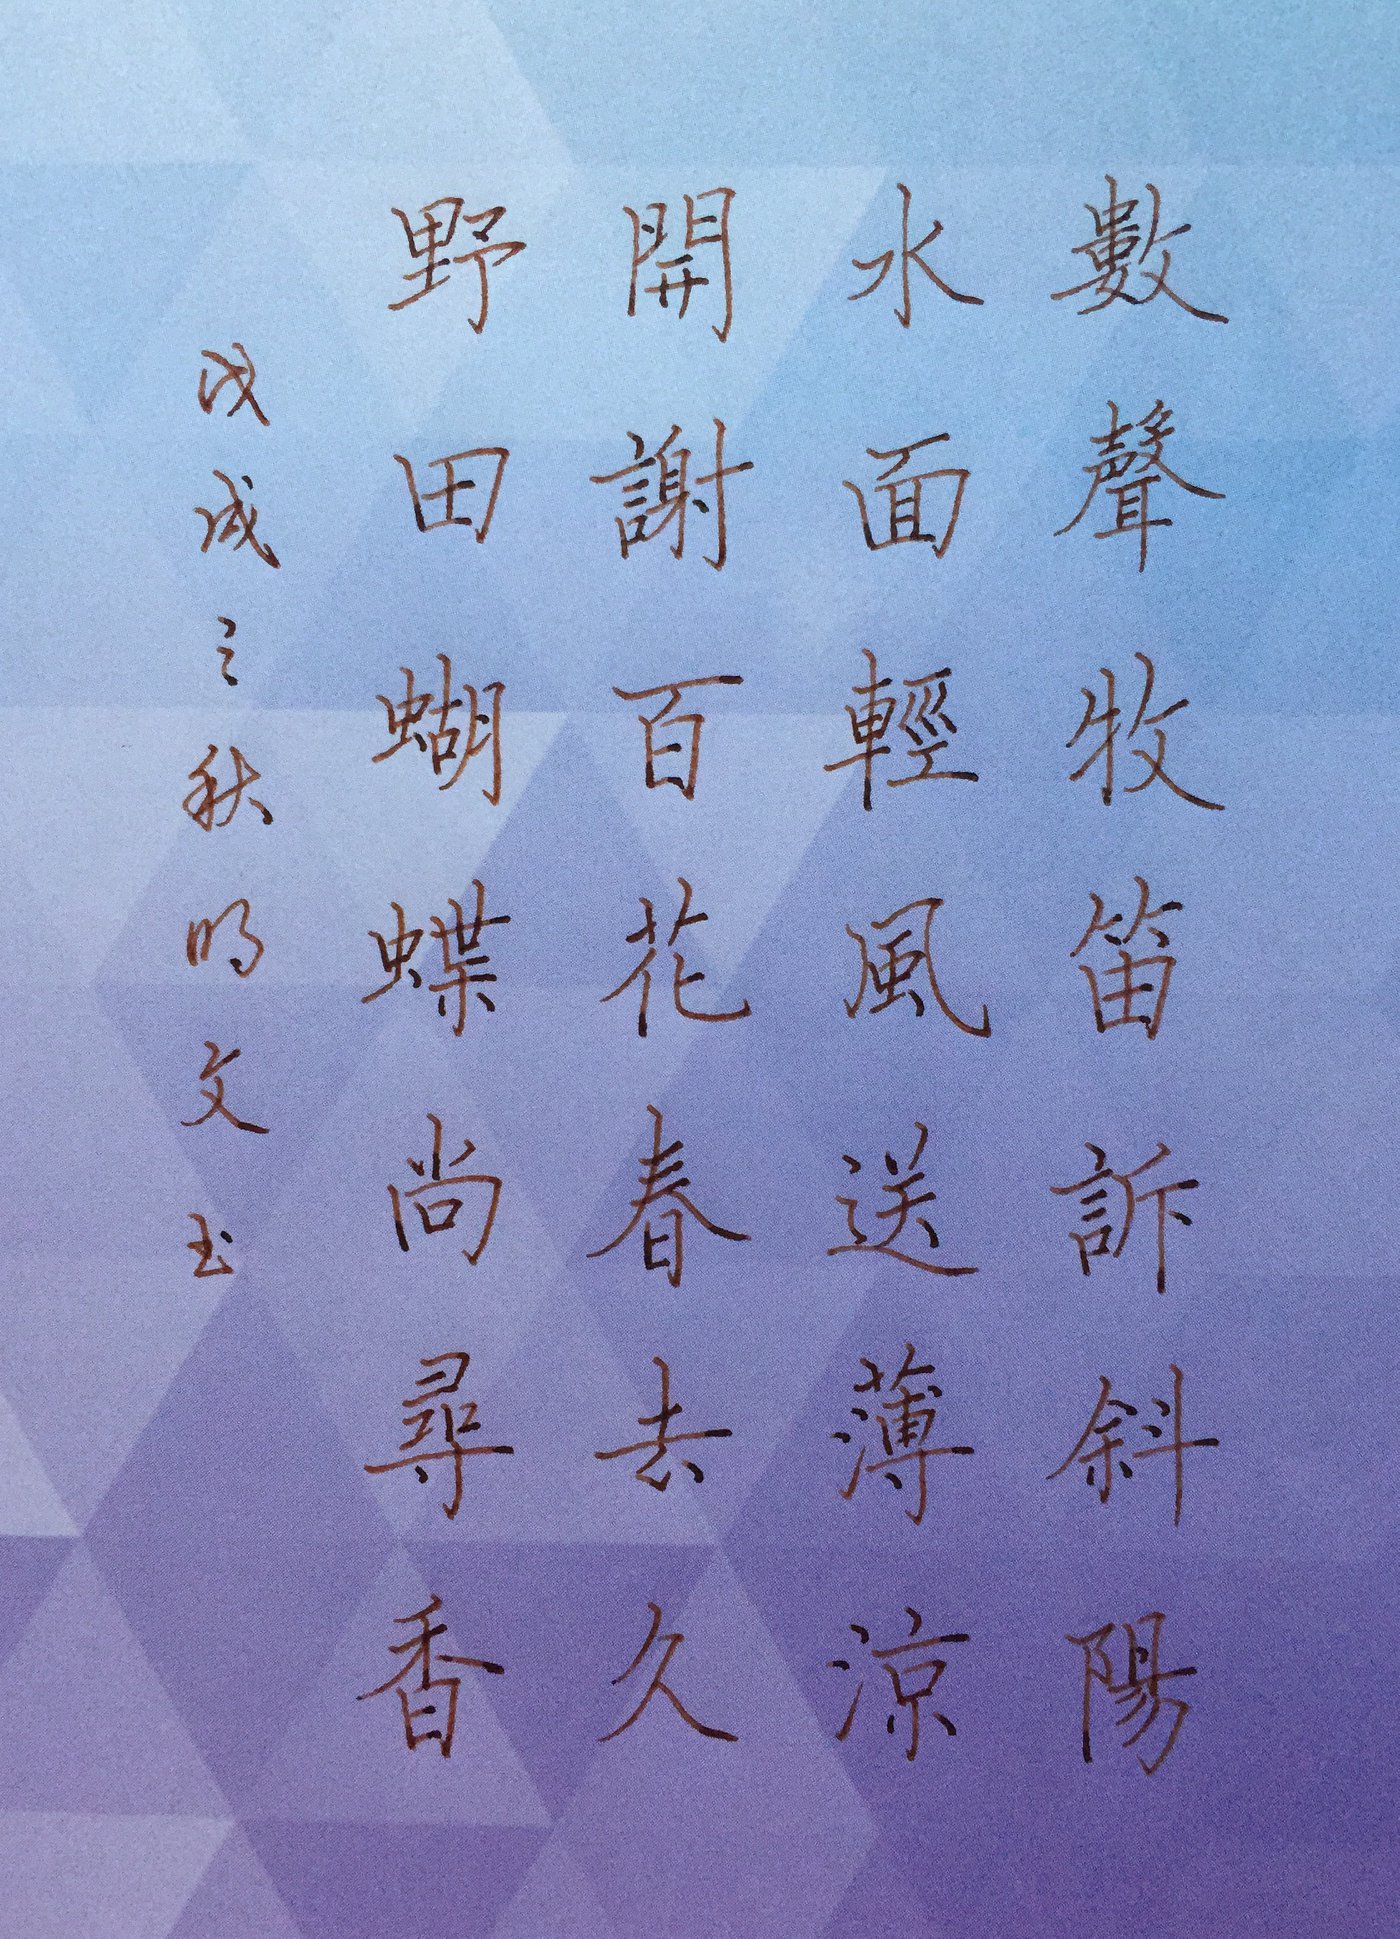 數聲牧笛訴斜陽
水面輕風送薄涼
開謝百花春去久
野田蝴蝶尚尋香
戊戌之秋明文书